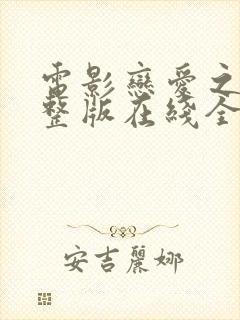 電影戀愛之
整版在綫全
安吉麗娜